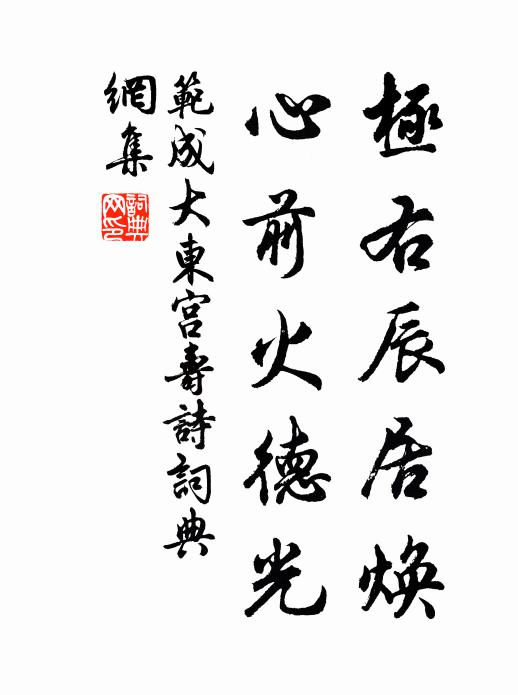 極右辰居煥
心前火德光
範成大東宮壽詩詞典
網集
詞典
网印